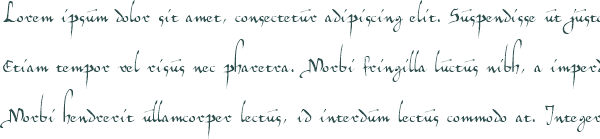 Lorem ipsum dolor sit amet, consectetur adipiscing elit. Suspendisse ut justo
Etiam tempor vel risus nec pharetra. Morbi fringilla luctus nibh, a imperd
Morbi hendrerit ullamcorper lectus, id interdum lectus commodo at. Integer